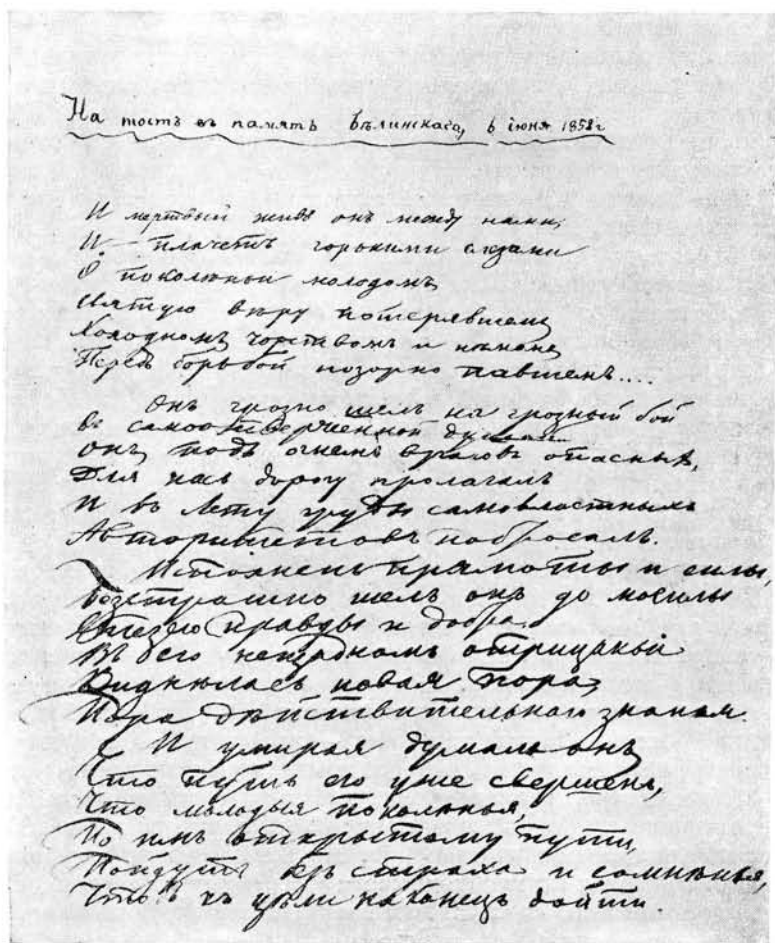 На тостъ въ память Бѣлинскаго, 6 iюня 1858 г
И мертвый живъ онъ между нами,
И плачетъ горькими слезами
О поколѣньи молодомъ
Святую вѣру потерявшемъ
Холодномъ, чорствомъ и нѣмомъ,
Передъ борьбой позорно павшемъ....
Онъ грозно шелъ на грозный бой
Съ самоотверженной душой
Онъ, подъ огнемъ враговъ опасныхъ,
Для насъ дорогу пролагалъ
И въ Лету груды самовластныхъ
Авторитетовъ побросалъ.
Исполненъ прямоты и силы,
Безстрашно шелъ онъ до могилы
Стезею правды и добра.
Въ его нещадномъ отрицаньи
Виднѣлась новая пора,
Пора дѣйствительнаго знанья.
И умирая думалъ онъ
Что путь его уже свершенъ,
Что молодыя поколѣнья,
По имъ открытому пути,
Пойдутъ безъ страха и сомнѣнья,
Чтобъ къ цѣли наконецъ дойти.